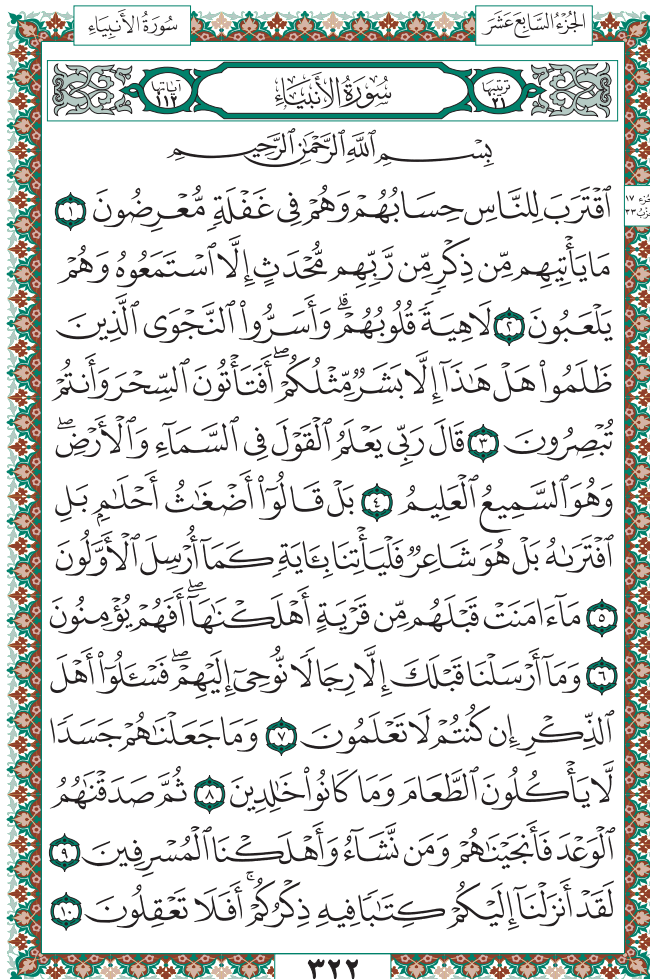 الجُزْءُ السَّابِعَ عَشَرَ
سُورَةُ الأَنبِيَاءِ
ترتيبها ٢١
سُورَةُ الأَنبِيَاءِ
آياتها ١١٢
بِسْمِ ٱللَّهِ ٱلرَّحْمَٰنِ ٱلرَّحِيمِ
ٱقْتَرَبَ لِلنَّاسِ حِسَابُهُمْ وَهُمْ فِى غَفْلَةٍ مُّعْرِضُونَ ١
مَا يَأْتِيهِم مِّن ذِكْرٍ مِّن رَّبِّهِم مُّحْدَثٍ إِلَّا ٱسْتَمَعُوهُ وَهُمْ
يَلْعَبُونَ ٢ لَاهِيَةً قُلُوبُهُمْ ۗ وَأَسَرُّوا۟ ٱلنَّجْوَى ٱلَّذِينَ
ظَلَمُوا۟ هَلْ هَٰذَآ إِلَّا بَشَرٌ مِّثْلُكُمْ ۖ أَفَتَأْتُونَ ٱلسِّحْرَ وَأَنتُمْ
تُبْصِرُونَ ٣ قَالَ رَبِّى يَعْلَمُ ٱلْقَوْلَ فِى ٱلسَّمَآءِ وَٱلْأَرْضِ ۖ
وَهُوَ ٱلسَّمِيعُ ٱلْعَلِيمُ ٤ بَلْ قَالُوٓا۟ أَضْغَٰثُ أَحْلَٰمٍۭ بَلِ
ٱفْتَرَىٰهُ بَلْ هُوَ شَاعِرٌ فَلْيَأْتِنَا بِـَٔايَةٍ كَمَآ أُرْسِلَ ٱلْأَوَّلُونَ
٥ مَآ ءَامَنَتْ قَبْلَهُم مِّن قَرْيَةٍ أَهْلَكْنَٰهَآ ۖ أَفَهُمْ يُؤْمِنُونَ
٦ وَمَآ أَرْسَلْنَا قَبْلَكَ إِلَّا رِجَالًا نُّوحِىٓ إِلَيْهِمْ ۖ فَسْـَٔلُوٓا۟ أَهْلَ
ٱلذِّكْرِ إِن كُنتُمْ لَا تَعْلَمُونَ ٧ وَمَا جَعَلْنَٰهُمْ جَسَدًا
لَّا يَأْكُلُونَ ٱلطَّعَامَ وَمَا كَانُوا۟ خَٰلِدِينَ ٨ ثُمَّ صَدَقْنَٰهُمُ
ٱلْوَعْدَ فَأَنجَيْنَٰهُمْ وَمَن نَّشَآءُ وَأَهْلَكْنَا ٱلْمُسْرِفِينَ ٩
لَقَدْ أَنزَلْنَآ إِلَيْكُمْ كِتَٰبًا فِيهِ ذِكْرُكُمْ ۖ أَفَلَا تَعْقِلُونَ ١٠
٣٢٢